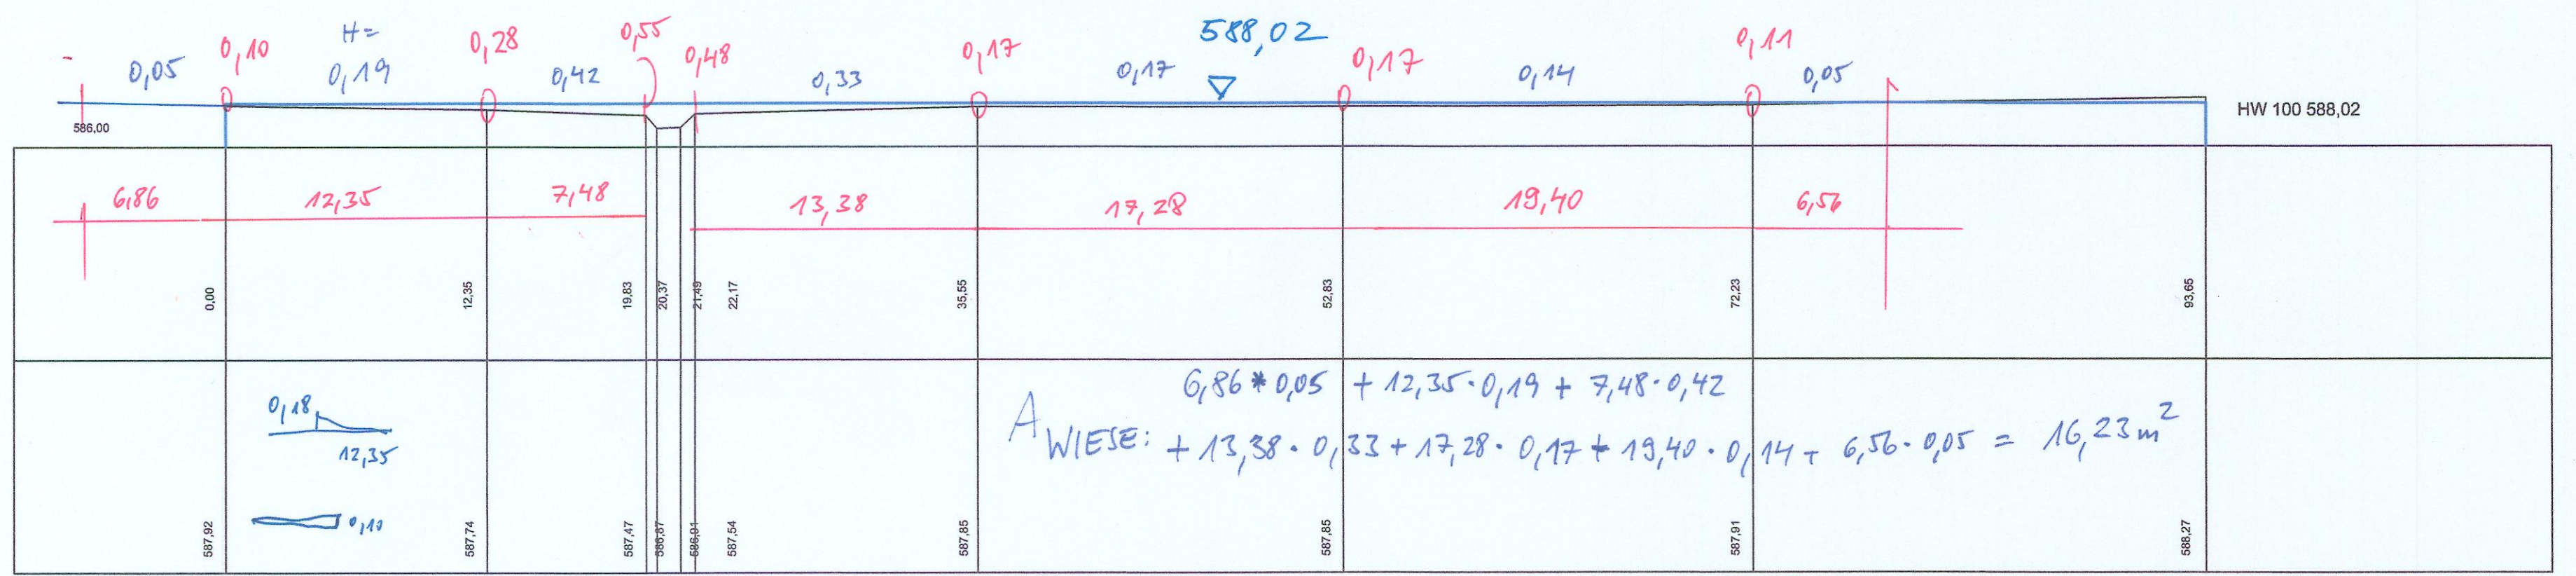 588,02
0,10 H= 0,28 0,55 0,48 0,17 0,17 0,11
0,05 0,19 0,42 0,33 0,17 0,14 0,05
586,00
HW 100 588,02
6,86 12,35 7,48 13,38 17,28 19,40 6,56
0,00 12,35 19,83 20,37 21,49 22,17 35,55 52,83 72,23 93,65
0,18
12,35
0,10
6,86 * 0,05 + 12,35 · 0,19 + 7,48 · 0,42
A WIESE: + 13,38 · 0,33 + 17,28 · 0,17 + 19,40 · 0,14 + 6,56 · 0,05 = 16,23 m²
587,92 587,74 587,47 586,87 586,91 587,54 587,85 587,85 587,91 588,27